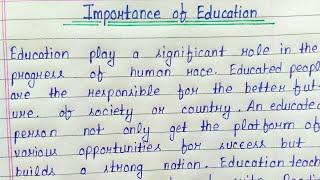 Importance of Education
Education play a significant role in the
progress of human race. Educated people
are the responsible for the better fut-
ure. of society or country. An educated
person not only get the platform of
various opportunities for success but
builds a strong nation. Education teach